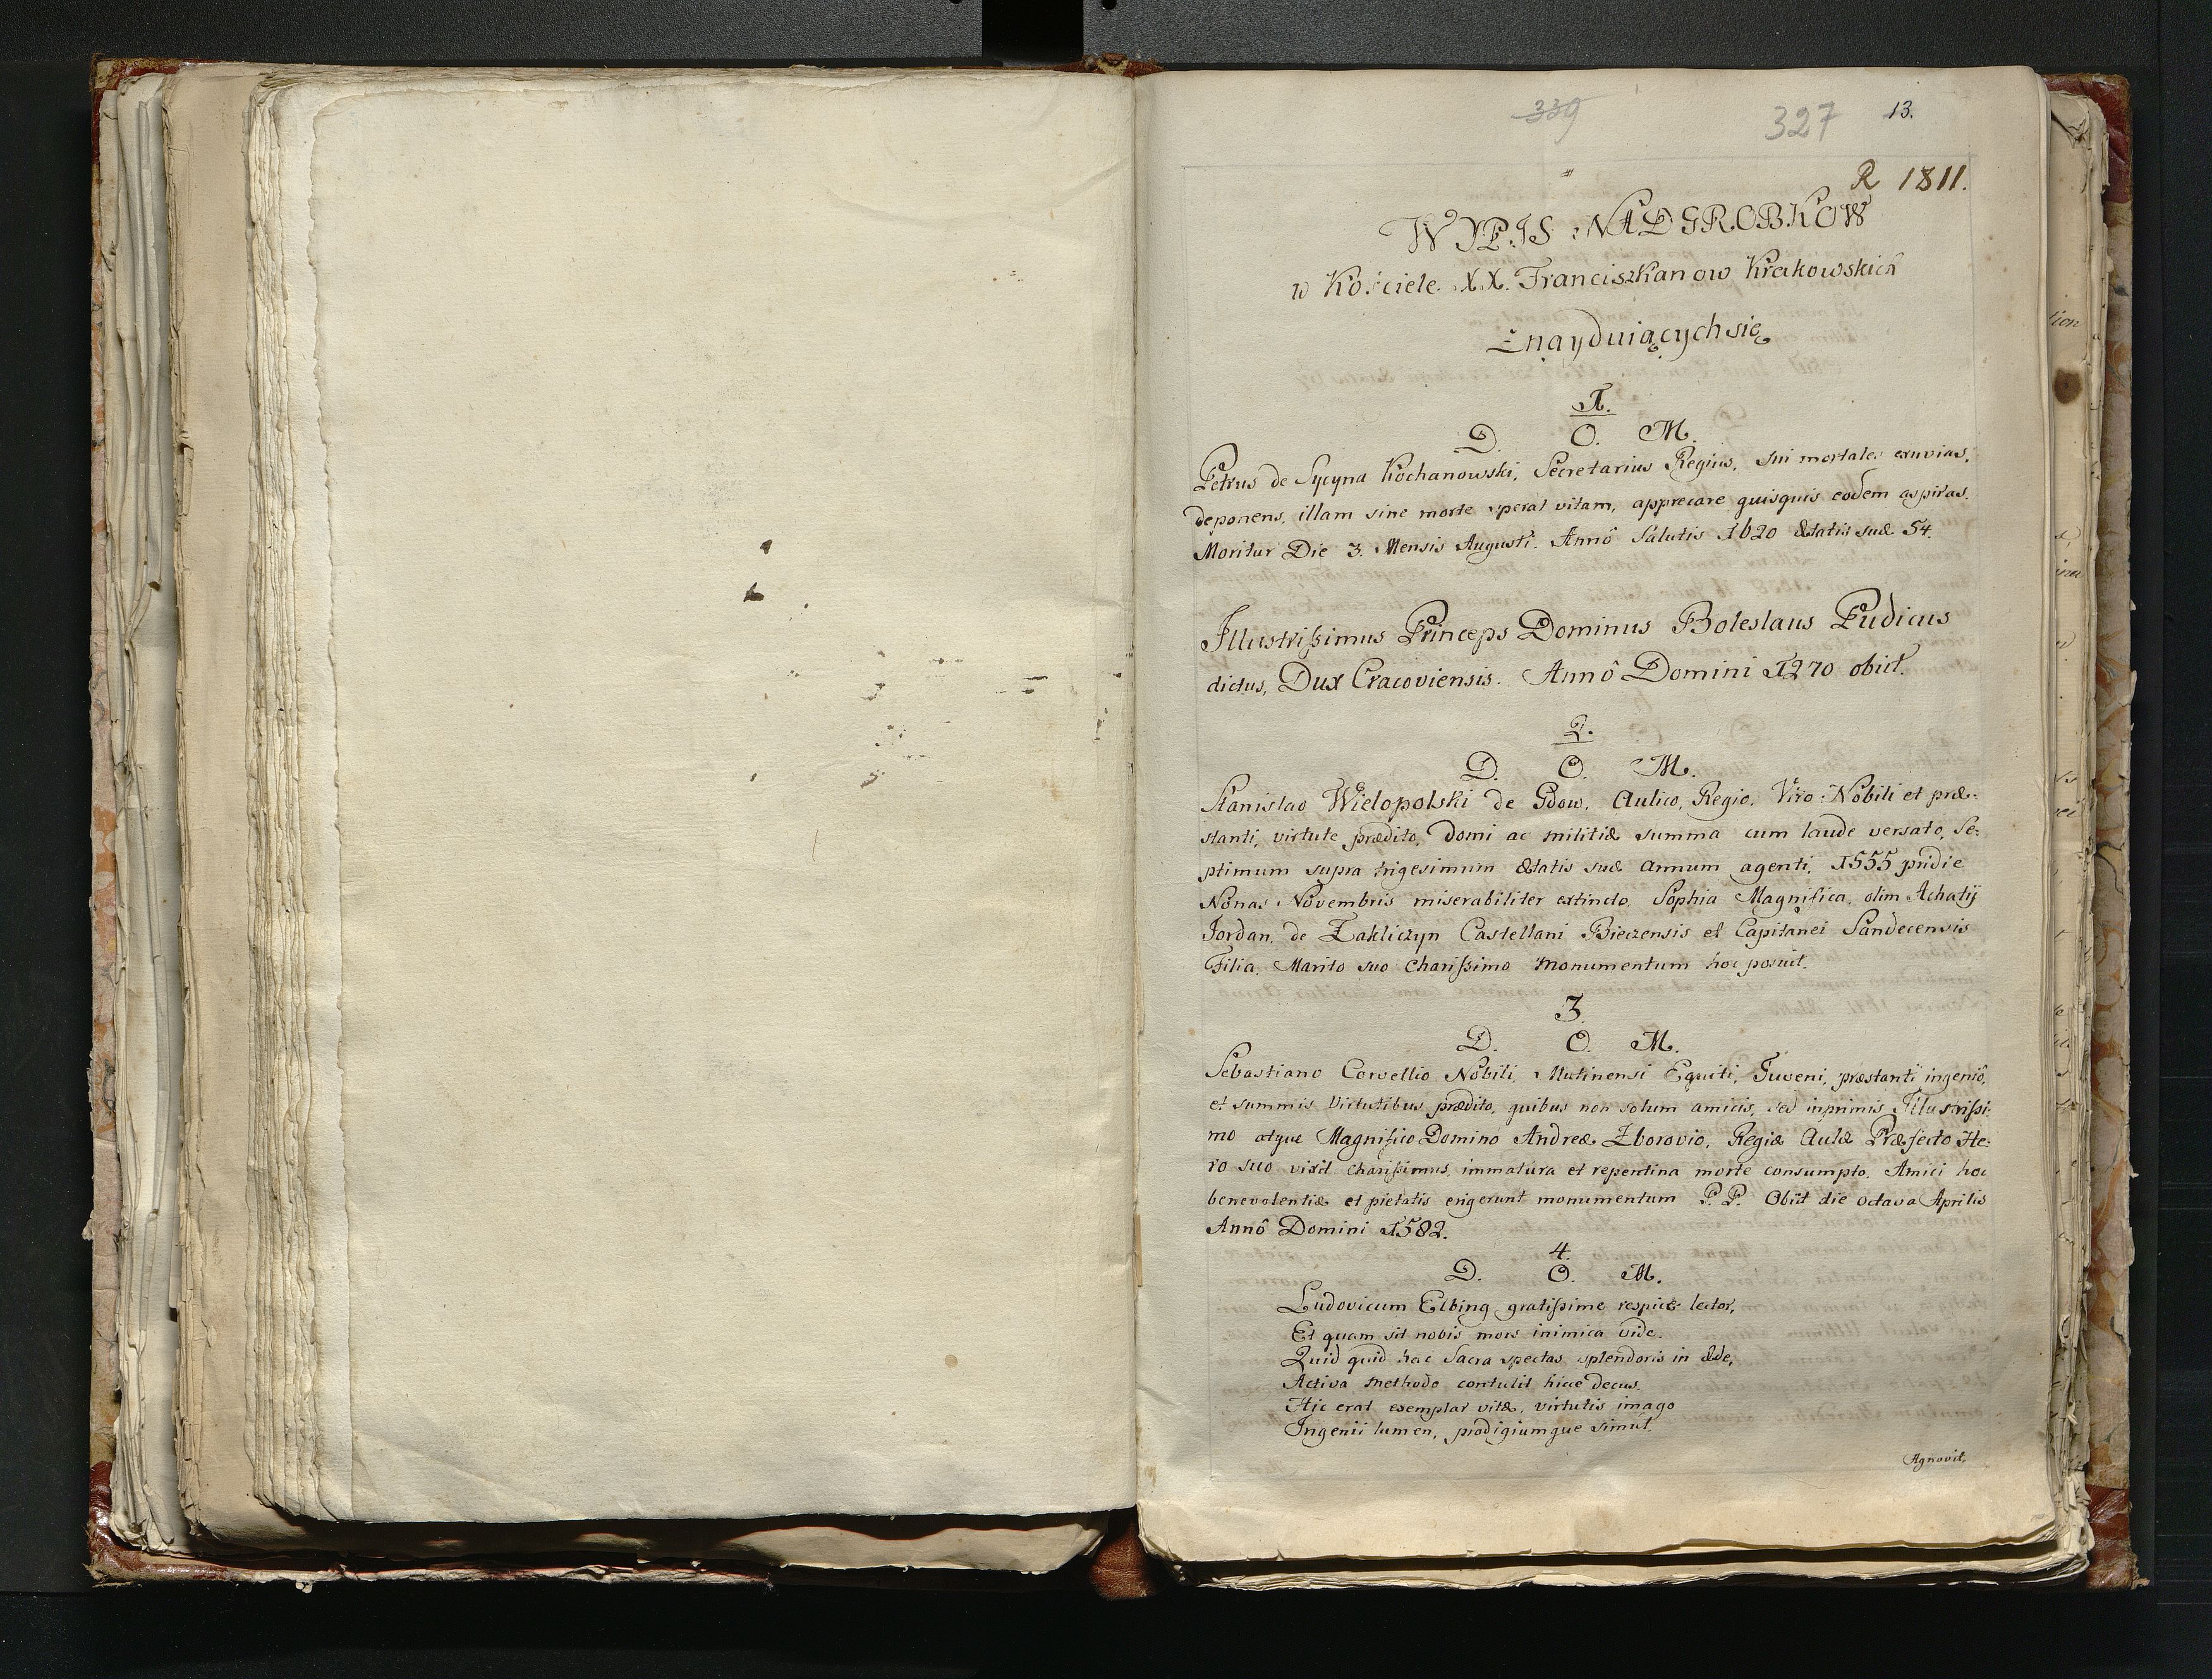 339 327 13.
R 1811.
WYPIS NADGROBKOW
w Kościele XX. Franciszkanow Krakowskich
Znayduiących się
1.
D. O. M.
Petrus de Sycyna Kochanowski, Secretarius Regius, sui mortales exuvias,
deponens, illam sine morte sperat vitam, apprecare quisquis eodem aspiras.
Moritur Die 3. Mensis Augusti. Annô Salutis 1620 Ætatis suæ 54.
Illustrißimus Princeps Dominus Boleslaus Pudicus
dictus, Dux Cracoviensis. Annô Domini 1270 obiit.
2.
D. O. M.
Stanislao Wielopolski de Gdow, Aulico, Regio, Viro Nobili et præ-
stanti, virtute prædito, domi ac militiæ summa cum laude versato, Se-
ptimum supra trigesimum Ætatis suæ annum agenti, 1555 pridie
Nonas Novembris miserabiliter extincto, Sophia Magnifica, olim Achatij
Jordan, de Zakliczyn Castellani Bieczensis et Capitanei Sandecensis
Filia, Marito suo Charißimo Monumentum hoc posuit.
3
D. O. M.
Sebastiano Corvellio Nobili, Mutinensi Equiti, Juveni, præstanti ingeniô,
et summis Virtutibus prædito, quibus non solum amicis, sed inprimis Illustrißi-
mo atque Magnifico Domino Andreæ Zborovio, Regiæ Aulæ Præfecto He-
ro suo vixit charißimus, immatura et repentina morte consumpto. Amici hoc
benevolentiæ et pietatis erigerunt monumentum P. P. Obiit die octava Aprilis
Annô Domini 1582.
4.
D. O. M.
Ludovicum Elbing gratißime respice lector,
Et quam sit nobis mors inimica vide.
Quid quid hac Sacra spectas splendoris in æde,
Activa methodo contulit hicce decus.
Hic erat exemplar vitæ, virtutis imago
Ingenii lumen, prodigiumque simul.
Agnovit,